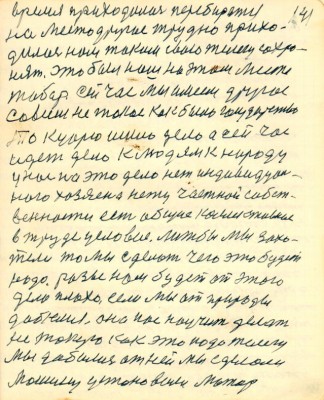 141
время приходилося перебирати
на место другое трудно прихо-
дилося нам таким своё телу сохра-
нят. Это был наш на этом месте
табор сей час мы имеем другое
совсем не такое как было государство
То к царю шло дело а сей час
идет дело к людям к народу
у нас на это дело нет индивидуал-
ного хозяена нету частной собст-
венности ест общие коллективное
в труде условие. Мы бы захо-
тели то мы сделаем чего это будет
надо. разве нам будет от этого
дело плохо, если мы от природы
добъемся. она нас научит делат
не такую как это надо телегу
мы добилися от ней мы сделали
машину установили матор